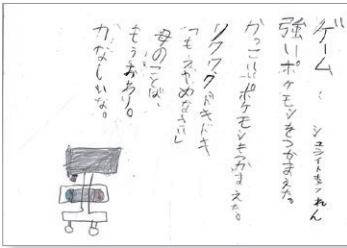 ゲーム
シュライトもあ れん
強いポケモンをつかまえた。
かっこいいポケモンをつかまえた。
ワクワクドキドキ
「もうやめなさい」
母のことば、
もうおわり。
かなしいな。